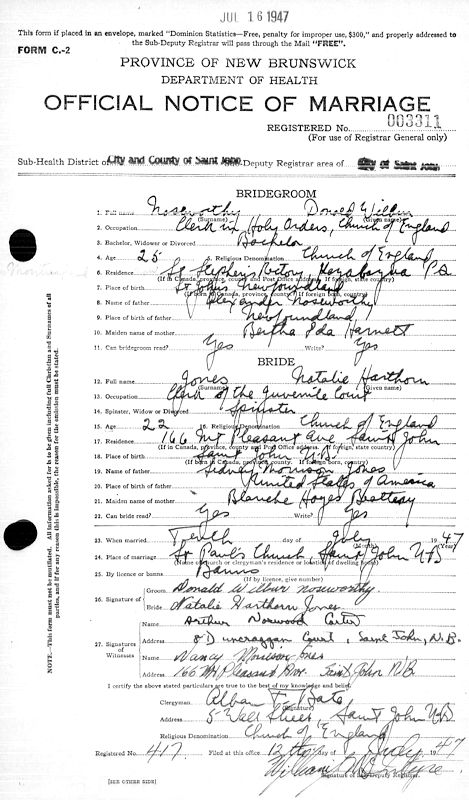 JUL 16 1947
This form if placed in an envelope, marked "Dominion Statistics—Free, penalty for improper use, $300," and properly addressed to
the Sub-Deputy Registrar will pass through the Mail "FREE".
FORM C.-2
PROVINCE OF NEW BRUNSWICK
DEPARTMENT OF HEALTH
OFFICIAL NOTICE OF MARRIAGE
REGISTERED No. 003311
(For use of Registrar General only)
Sub-Health District of City and County of Saint John Sub-Deputy Registrar area of City of Saint John
BRIDEGROOM
1. Full name Noseworthy Donald Wilbur
(Surname) (Given name)
2. Occupation Clerk in Holy Orders, Church of England
3. Bachelor, Widower or Divorced Bachelor
4. Age 25 5. Religious Denomination Church of England
6. Residence St Stephen's Rectory, P.Q.
(If in Canada, province, county and Post Office address. If foreign, state country)
7. Place of birth St John's Newfoundland
(If born in Canada, province, county. If foreign born, country)
8. Name of father Alexander Noseworthy
9. Place of birth Newfoundland
10. Maiden name of mother Bertha Ida Harnett
11. Can bridegroom read? Yes Write? Yes
BRIDE
12. Full name Jones Natalie Harthorn
(Surname) (Given name)
13. Occupation Clerk of the Juvenile Court
14. Spinster, Widow or Divorced Spinster
15. Age 22 16. Religious Denomination Church of England
17. Residence 166 Mt Pleasant Ave Saint John
(If in Canada, province, county and Post Office address. If foreign, state country)
18. Place of birth Saint John N.B.
(If born in Canada, province, county. If foreign born, country)
19. Name of father Sidney Morrison Jones
20. Place of birth United States of America
21. Maiden name of mother Blanche Hayes Beatteay
22. Can bride read? Yes Write? Yes
23. When married Tenth day of July 1947
(Month) (Year)
24. Place of marriage St Paul's Church, Saint John NB
(Name of church or clergyman's residence or location of dwelling house)
25. By licence or banns Banns
(If by licence, give number)
26. Signature of Groom Donald Wilbur Noseworthy
Bride Natalie Harthorn Jones
27. Signatures of Witnesses
Name Arthur Norwood Carter
Address Court, Saint John, N.B.
Name Nancy Morrison Jones
Address 166 Mt Pleasant Ave. Saint John NB
I certify the above stated particulars are true to the best of my knowledge and belief.
Clergyman Alban F. Bate
(Signature)
Address 5 Wall Street, Saint John NB
Religious Denomination Church of England
Registered No. 417 Filed at this office 12th day July 1947
William
Signature of Sub-Deputy Registrar
[SEE OTHER SIDE]
NOTE—This form must not be mutilated. All information asked for to be given including full Christian and Surnames of all
parties, and if for any reason this is impossible, the reason for the omission must be stated.